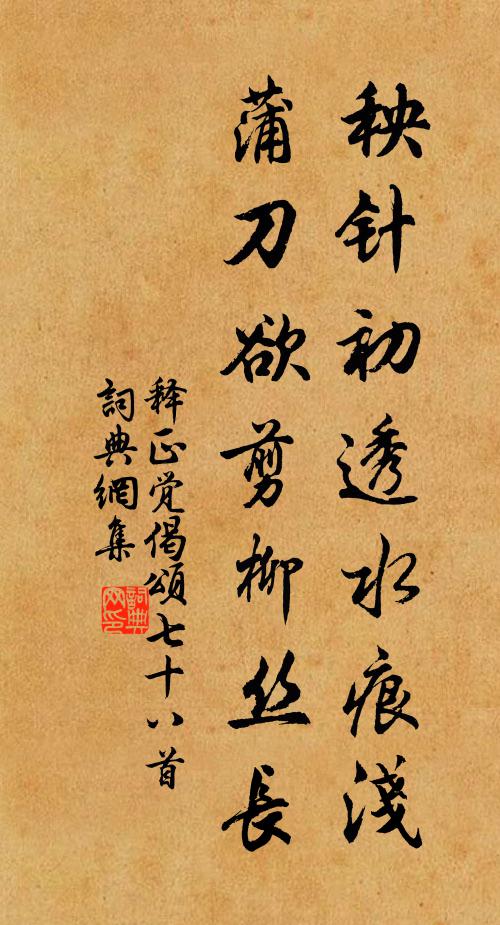 秧针初透水痕淺
蒲刀欲剪柳丝長
释正觉偈頌七十八首
詞典網集
詞典网印